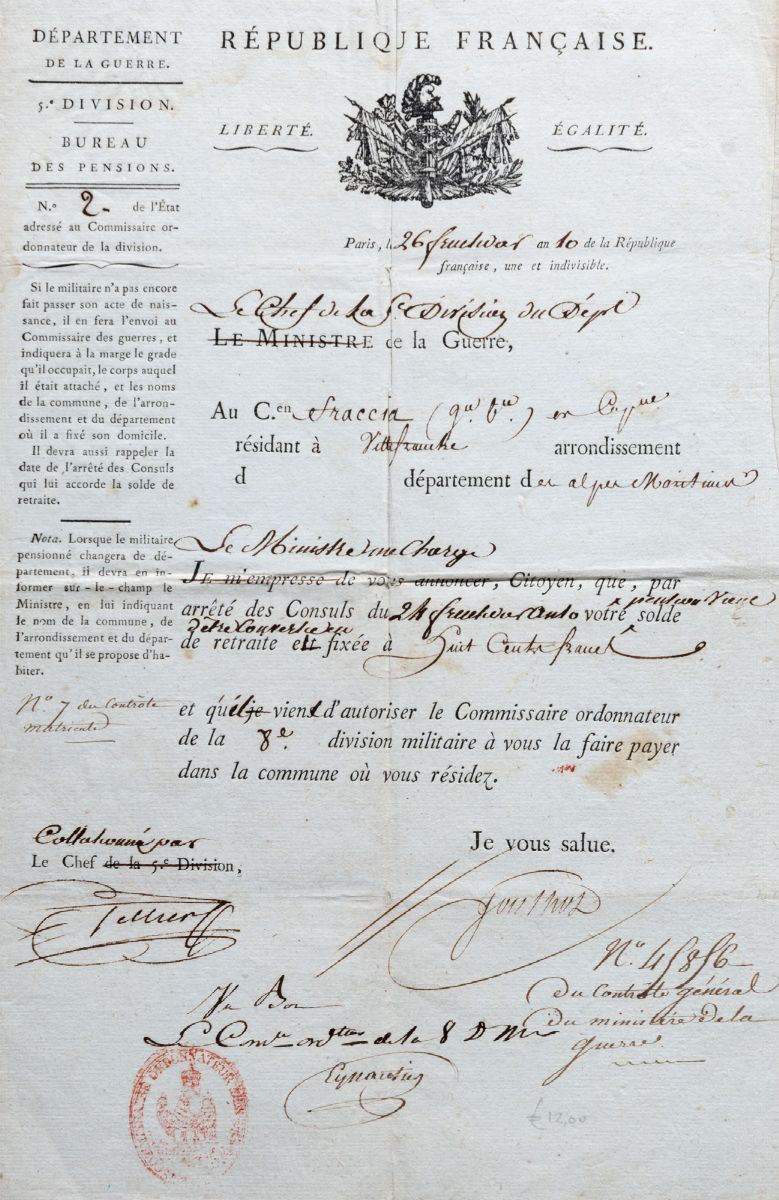 DÉPARTEMENT
DE LA GUERRE.
5.e DIVISION.
BUREAU
DES PENSIONS.
N.o 2 de l'État
adressé au Commissaire or-
donnateur de la division.
Si le militaire n'a pas encore
fait passer son acte de nais-
sance, il en fera l'envoi au
Commissaire des guerres, et
indiquera à la marge le grade
qu'il occupait, le corps auquel
il était attaché, et les noms
de la commune, de l'arron-
dissement et du département
où il a fixé son domicile.
Il devra aussi rappeler la
date de l'arrêté des Consuls
qui lui accorde la solde de
retraite.
Nota. Lorsque le militaire
pensionné changera de dé-
partement, il devra en in-
former sur-le-champ le
Ministre, en lui indiquant
le nom de la commune, de
l'arrondissement et du dépar-
tement qu'il se propose d'ha-
biter.
No 7 du Contrôle
matricule
RÉPUBLIQUE FRANÇAISE.
LIBERTÉ. ÉGALITÉ.
Paris, le 26 fructidor an 10 de la République
française, une et indivisible.
Le Chef de la 5e Division du Dépt
LE MINISTRE de la Guerre,
Au C.en fraccia
résidant à Villefranche arrondissement
d département des alpes Maritimes
Le Ministre me Charge
JE m'empresse de vous annoncer, Citoyen, que, par
pension
arrêté des Consuls du 24 fructidor an 10 votre solde
d'être convertie en
de retraite est fixée à huit Cents francs.
et qu'il je vient d'autoriser le Commissaire ordonnateur
de la 8e. division militaire à vous la faire payer
dans la commune où vous résidez.
Je vous salue.
Collationné par
Le Chef de la 5.e Division,
Tellier
Gonthot
No 45856
du Contrôle général
du ministre de la
guerre
Vu Bon
Le Comre ordteur de la 8 D Mre
€ 12,00